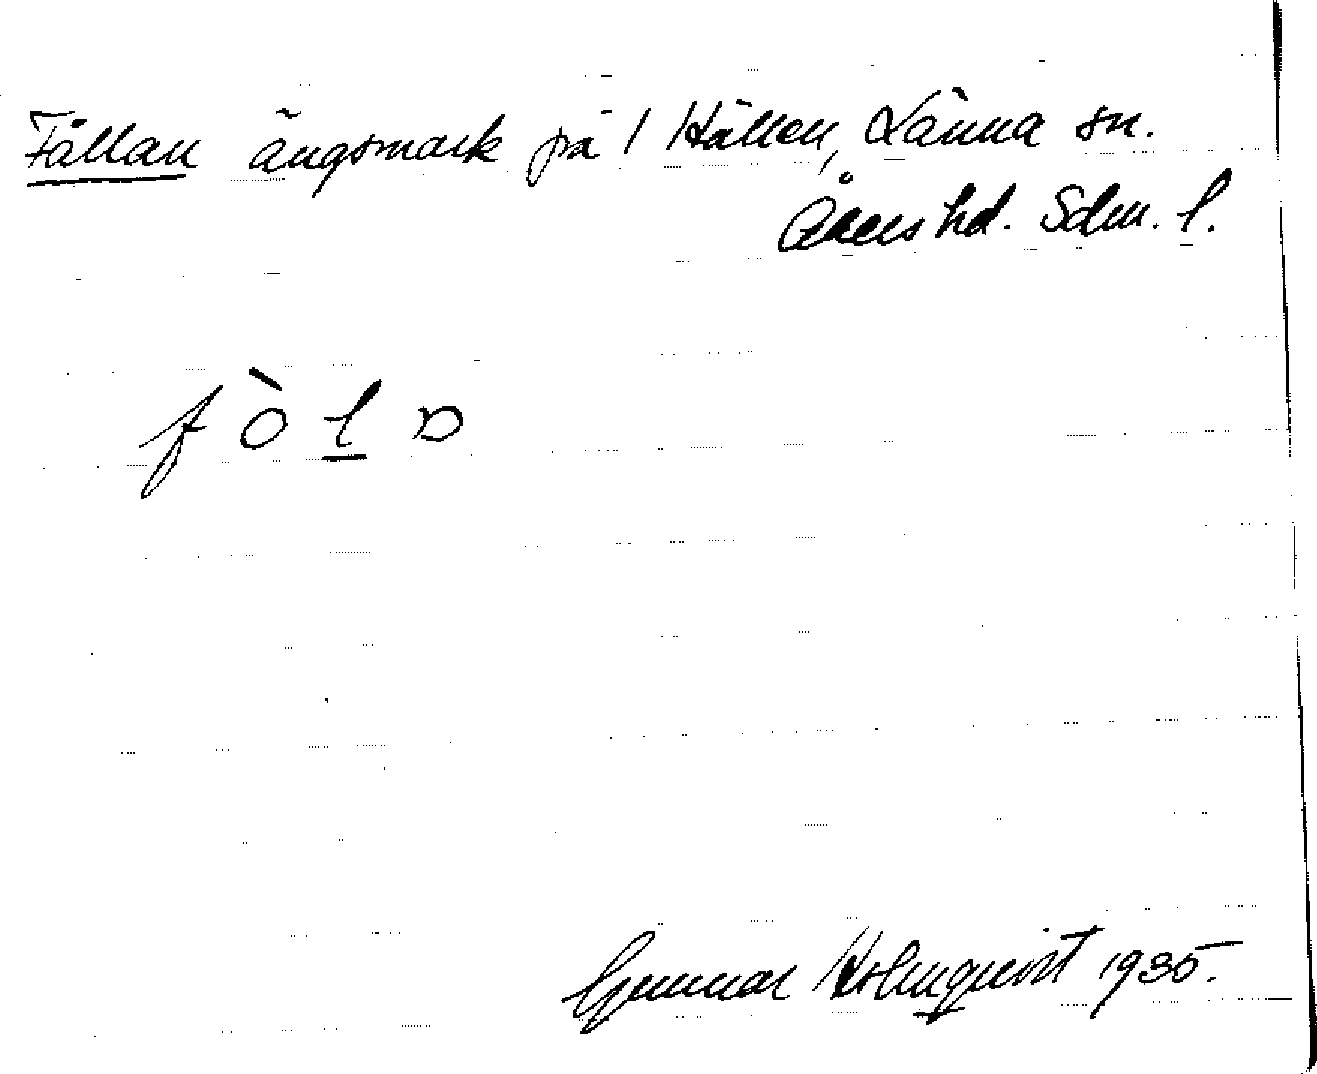 Fållan ängsmark på 1 Hällen, Länna sn.
Åkers hd. Sdm. l.
fòlɒ
Gunnar Holmqvist 1935.